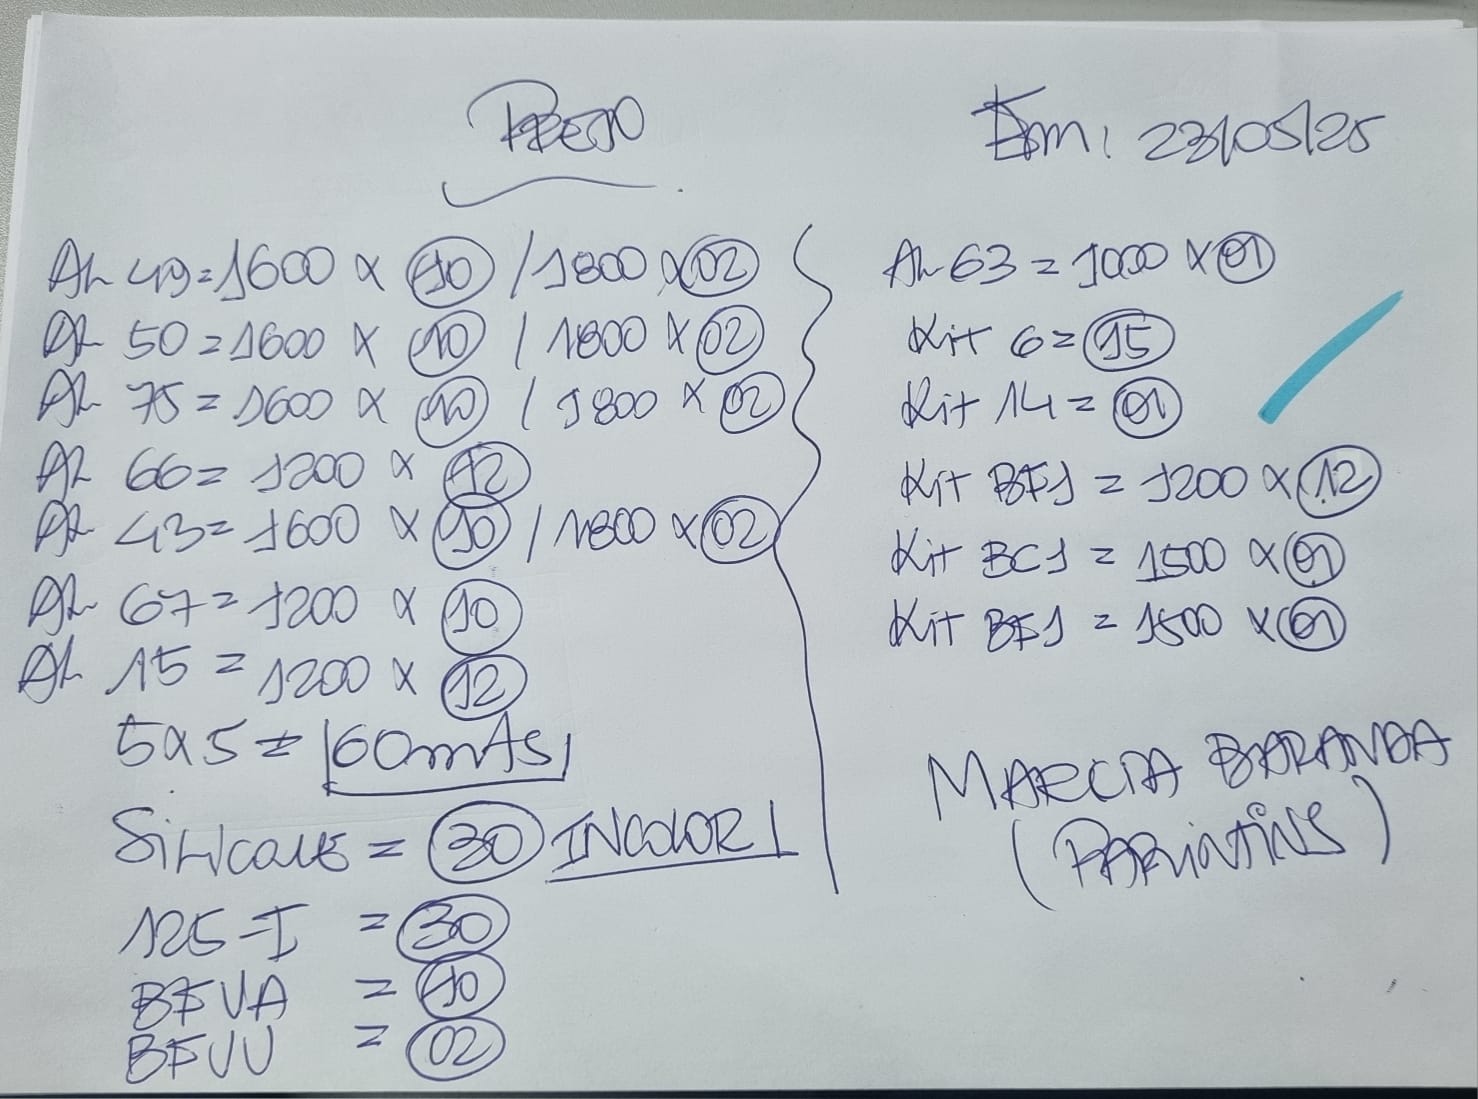 PRETO
Em: 23/05/25
AL 49 = 1600 x 10 / 1800 x 02
AL 50 = 1600 x 10 / 1800 x 02
AL 75 = 1600 x 10 / 1800 x 02
AL 66 = 1200 x 12
AL 43 = 1600 x 10 / 1800 x 02
AL 67 = 1200 x 10
AL 15 = 1200 x 12
5x5 = 60mts
Silicone = 30 INCOLOR
125-I = 30
BFVA = 10
BFVV = 02
AL 63 = 1000 x 01
Kit 6 = 15
Kit 14 = 01
Kit BF1 = 1200 x 12
Kit BC1 = 1500 x 01
Kit BF1 = 1500 x 01
MARCIA BARANDA
(PARINTINS)